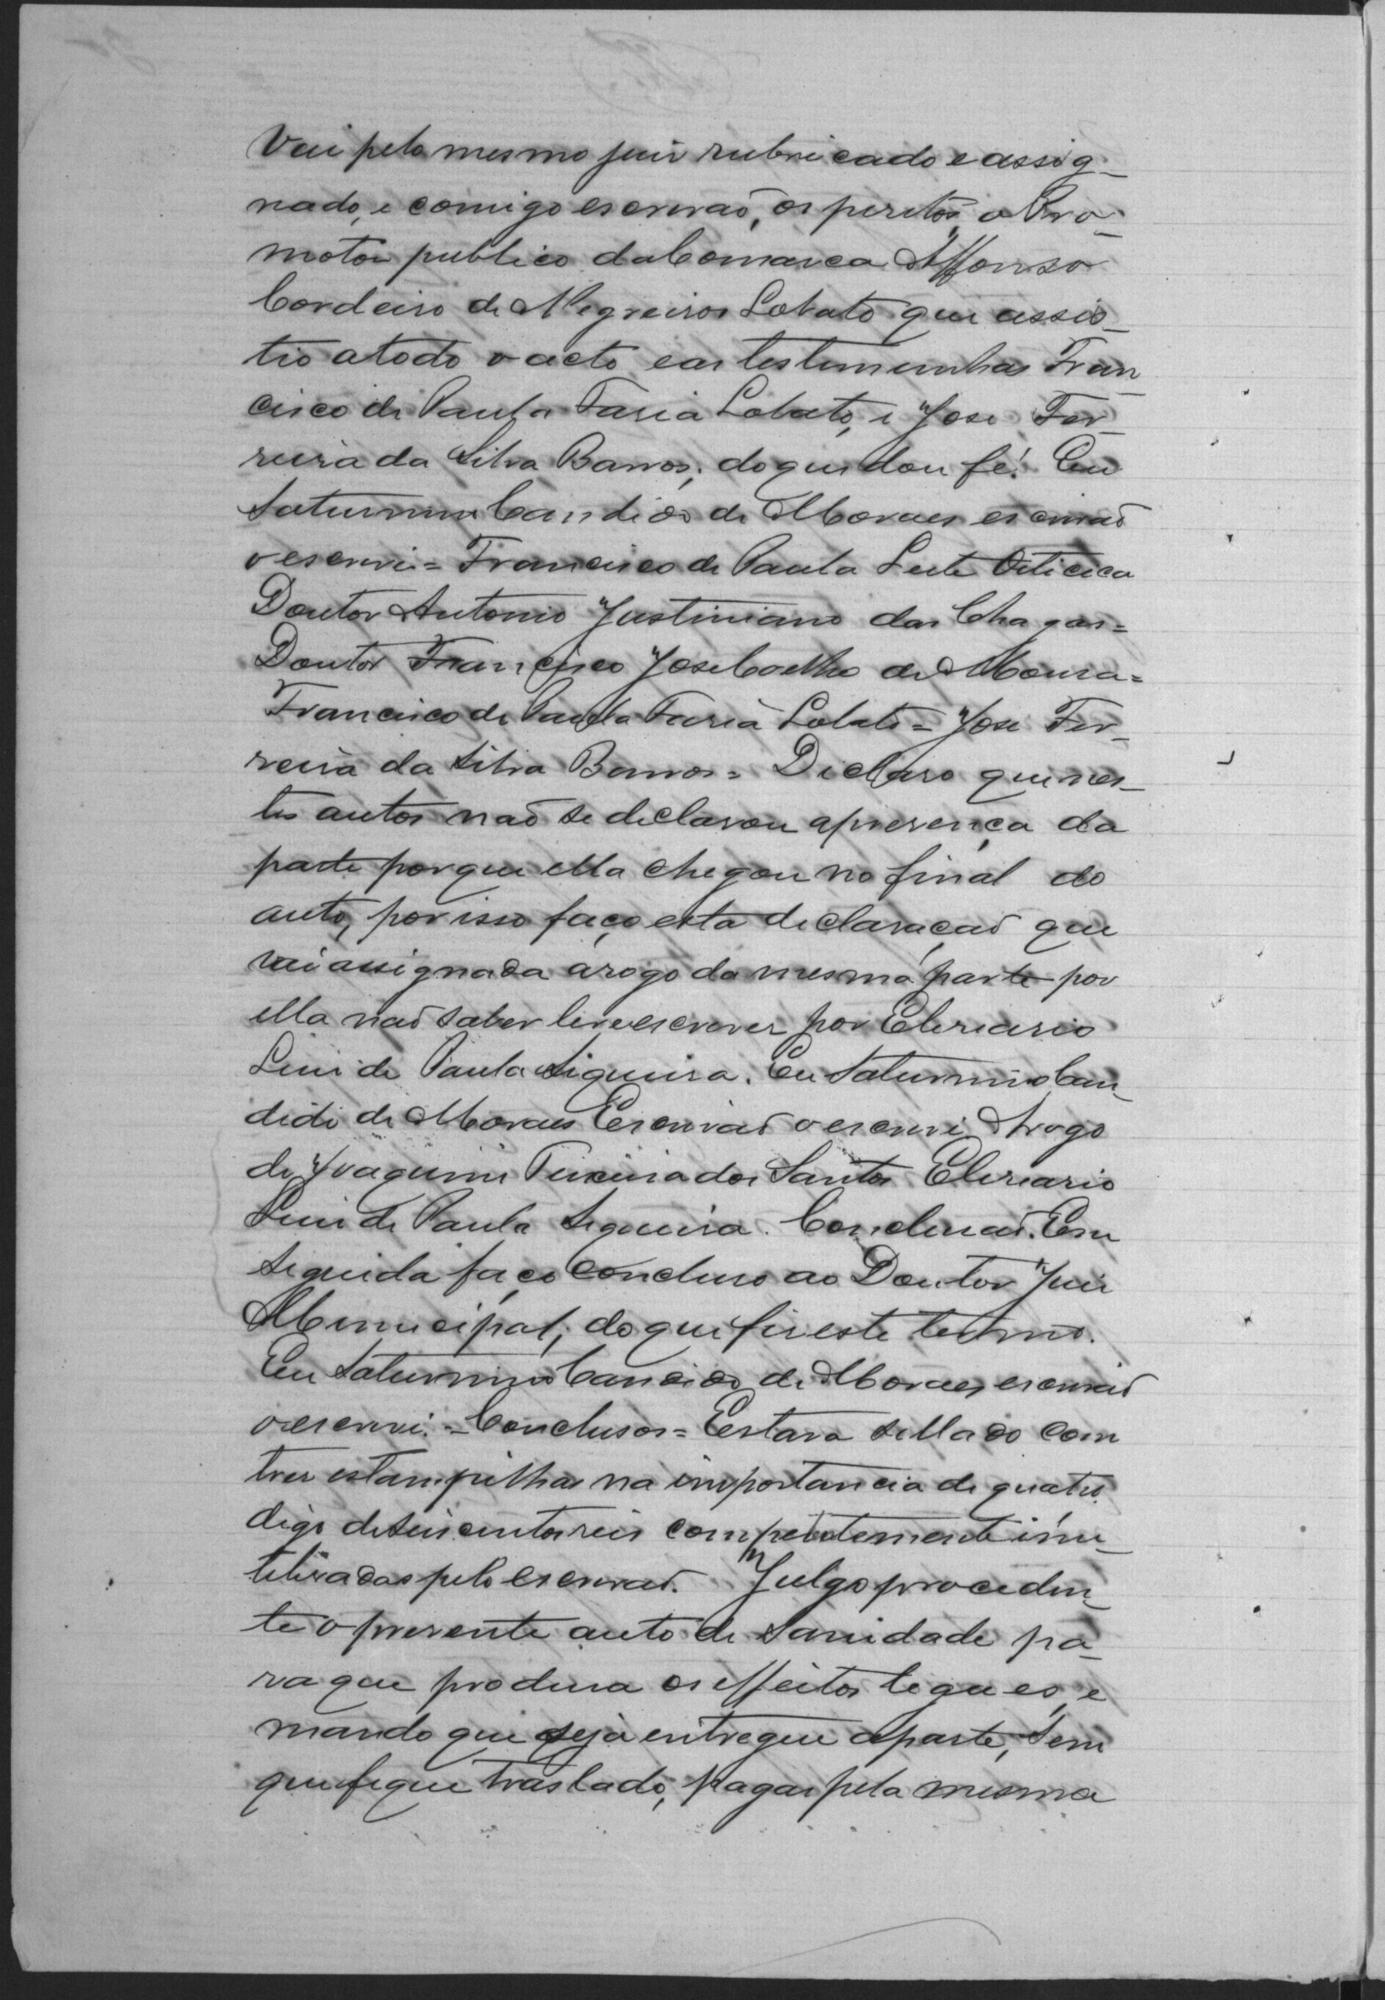 Vai pelo mesmo juiz rubricado e assig-
nado, e comigo escrivaõ, os peritos, o Pro-
motor publico da Comarca Affonso
Cordeiro de Negreiros Lobato que assis-
tio a todo o acto e as testemunhas Fran
cisco de Paula Faria Lobato, e José Fer-
reira da Silva Barros; do que dou fé. Eu
Saturnino Candido de Moraes escrivaõ
o escrevi = Francisco de Paula Leite Oiticica
Doutor Antonio Justiniano das Chagas =
Doutor Francisco José Coelho de Moura =
Francisco de Paula Faria Lobato = José Fer-
reira da Silva Barros = Declaro que nes-
tes autos naõ se declarou a presença da
parte porque ella chegou no final do
auto, por isso faço esta declaraçaõ que
vai assignada á rogo da mesma parte por
ella naõ saber ler e escrever por Elisiario
Luiz de Paula Siqueira. Eu Saturnino Can-
dido de Moraes Escrivaõ o escrevi. A rogo
de Joaquim Teixeira dos Santos Elisiario
Luiz de Paula Siqueira. Conclusaõ. Em
seguida faço concluso ao Doutor Juiz
Municipal; do que fiz este termo.
Eu Saturnino Candido de Moraes escrivaõ
o escrevi. = Conclusos = Estava sellado com
tres estampilhas na importancia de quatro
digo de seis centos reis competentemente inu-
telizadas pelo escrivaõ. Julgo proceden-
te o presente auto de Sanidade pa-
ra que produza os effeitos legaes, e
mando que seja entregue a parte, sem
que fique traslado, pagas pela mesma